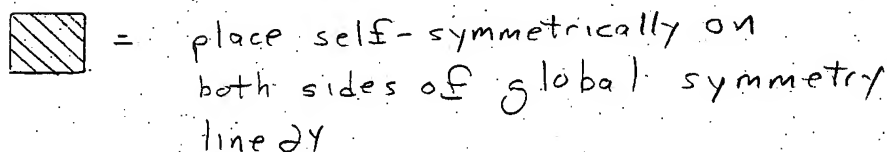 = place self-symmetrically on
both sides of global symmetry
line ∂Y